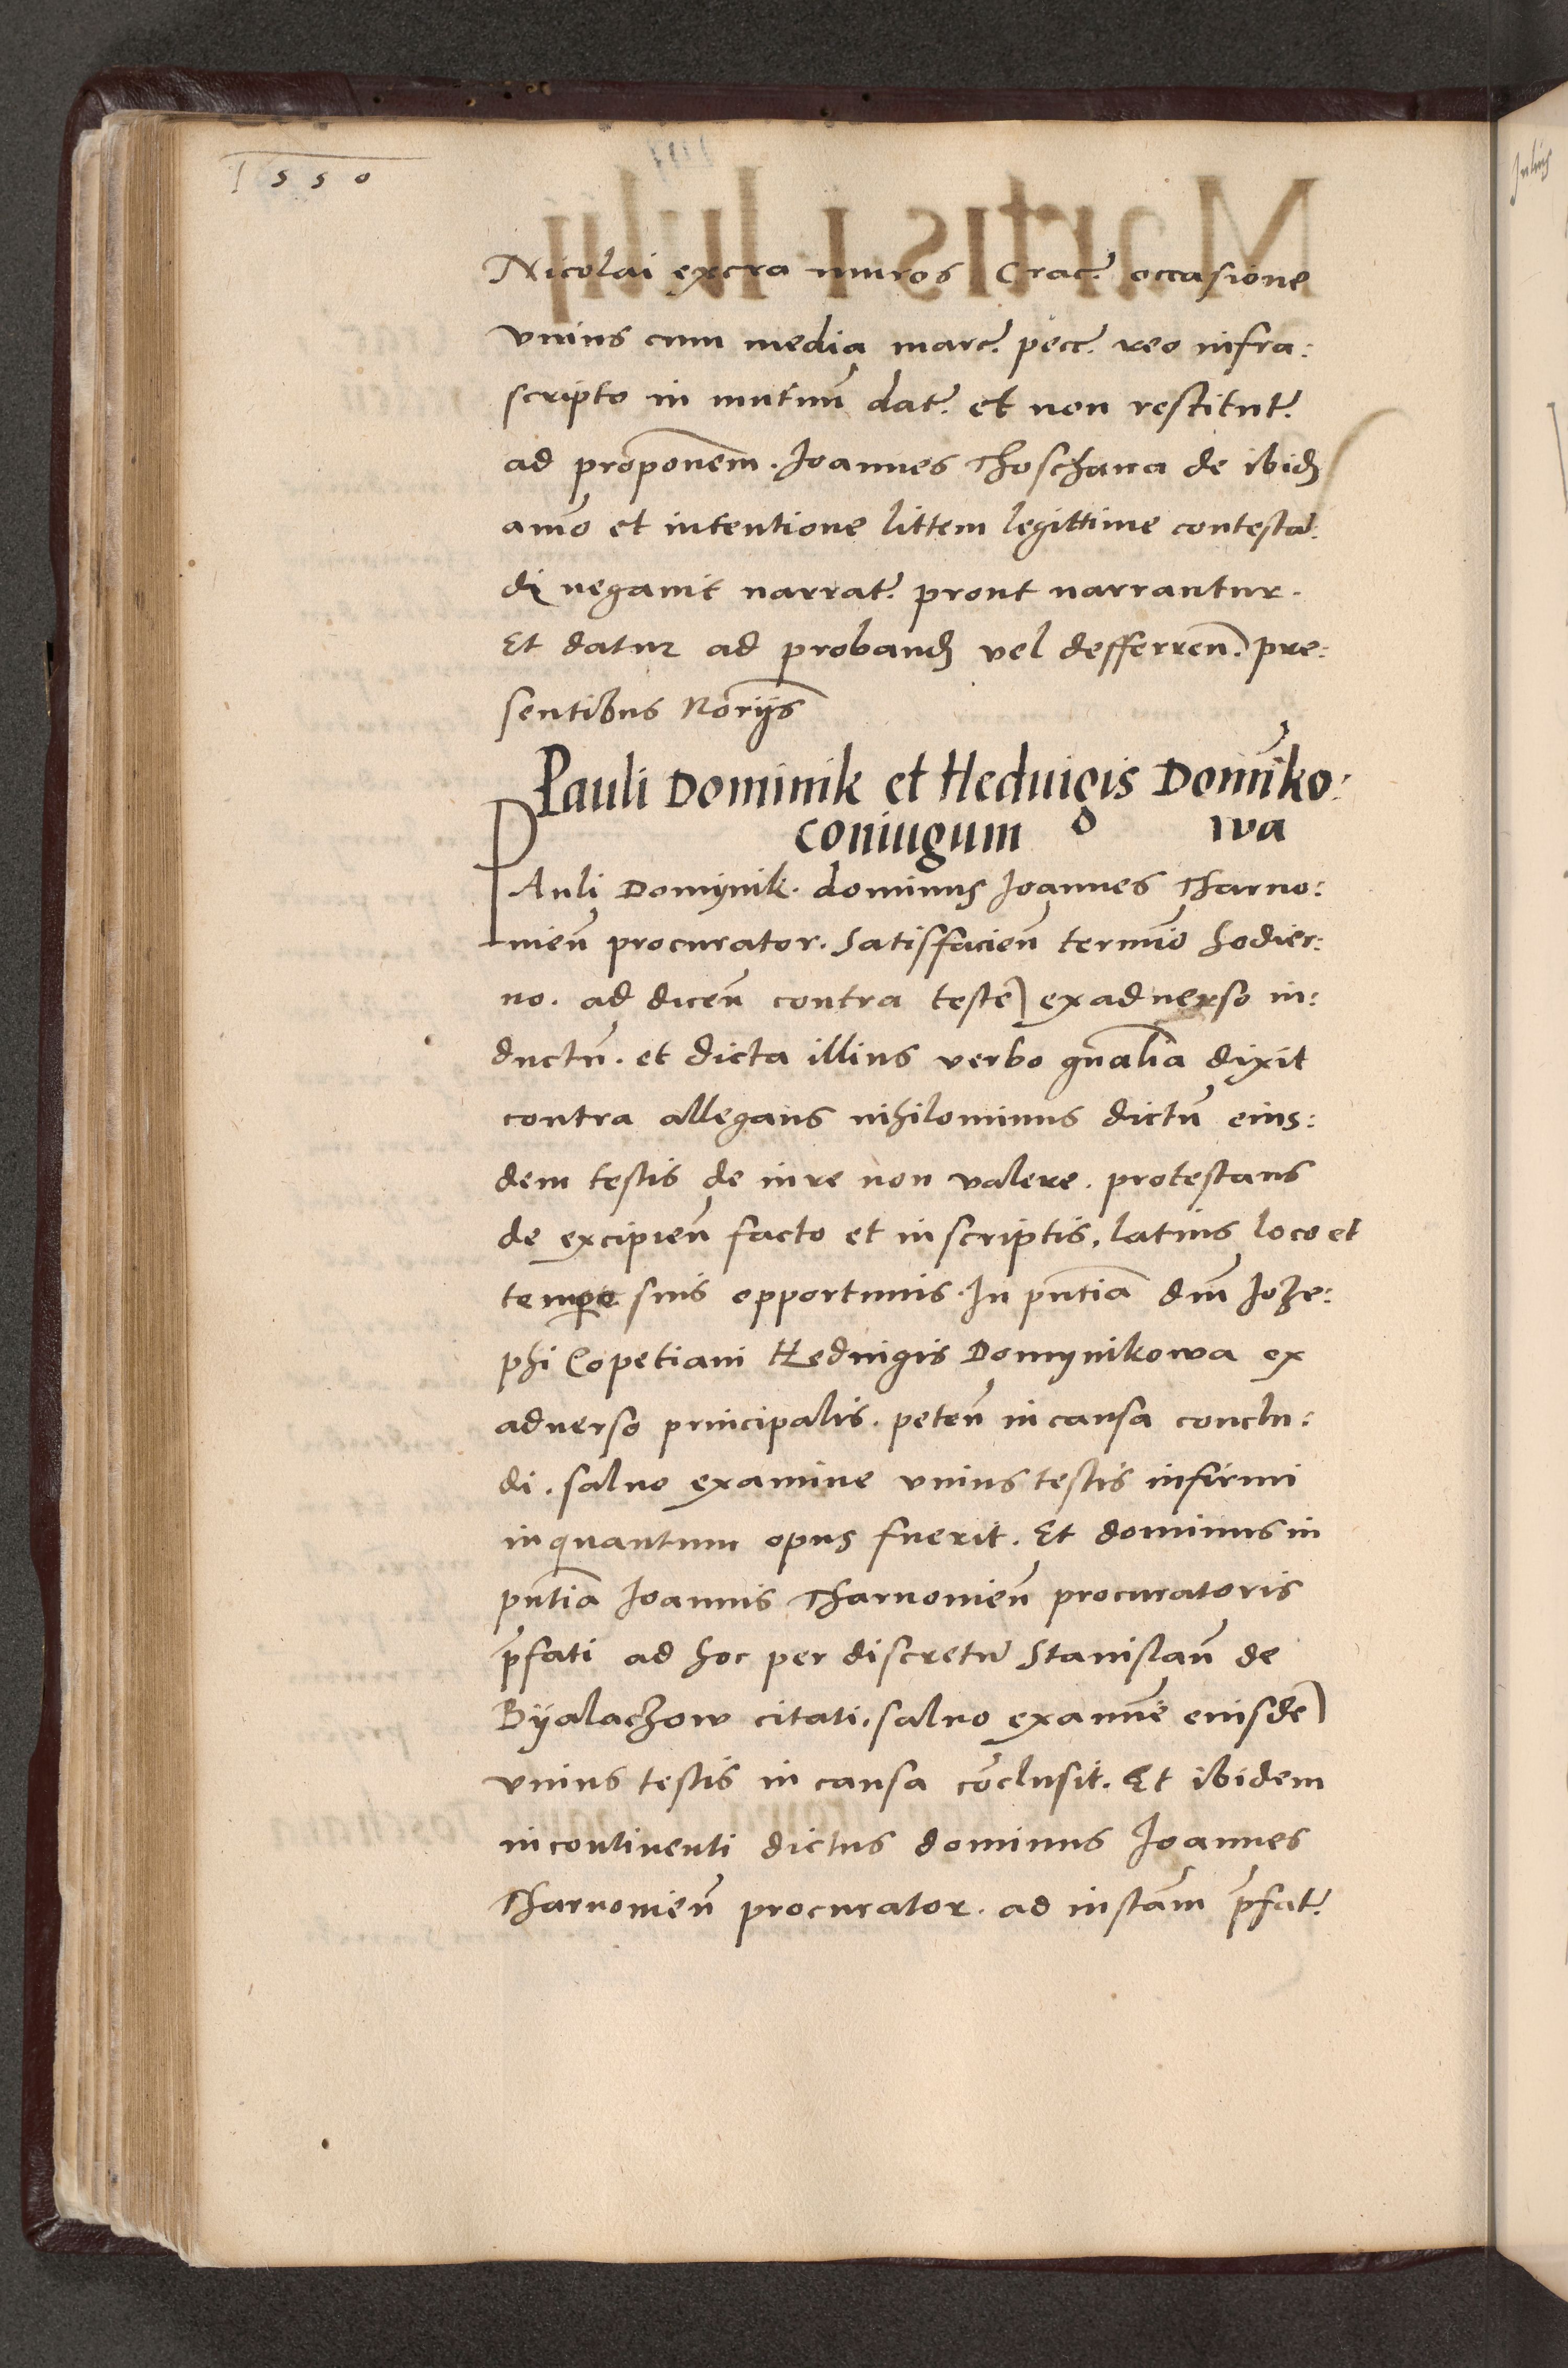 1550
Nicolai extra muros Crac. occasione
vnius cum media marc. pecc. reo infra:
scripto in mutuũ dat. et non restitut.
ad proponem̃. Joannes Thoschana de ibid
amõ et intentione littem legittime contesta:
di negauit narrat. prout narrantur.
Et datur ad proband vel defferren. pre:
sentibus Norijs
Pauli Dominik et Heduigis Dominko:
coniugum wa
PAuli Dominik. dominus Joannes Tharno:
uieñ procurator. Satisfacieñ termiõ hodier:
no. ad diceñ contra teste exaduerso in:
ductũ. et dicta illius verbo gñalia dixit
contra allegans nihilominus dictũ eius:
dem testis de iure non valere. protestans
de excipieñ facto et in scriptis, latius loco et
tempe suis opportunis. In pñtia dñi Joze:
phi Copetiani Heduigis Domynikowa ex
aduerso principalis. peteñ in causa conclu:
di. saluo examine vnius testis infirmi
inquantum opus fuerit. Et dominus in
pñtia Joannis Tharnouieñ procuratoris
p̃fati ad hoc per discretũ Stanislaũ de
Byalaczow citati. saluo examiẽ euisdẽ
vnius testis in causa cõclusit. Et ibidem
incontinenti dictus dominus Joannes
Tharnouieñ procurator. ad instam̃ p̃fat.
Julius